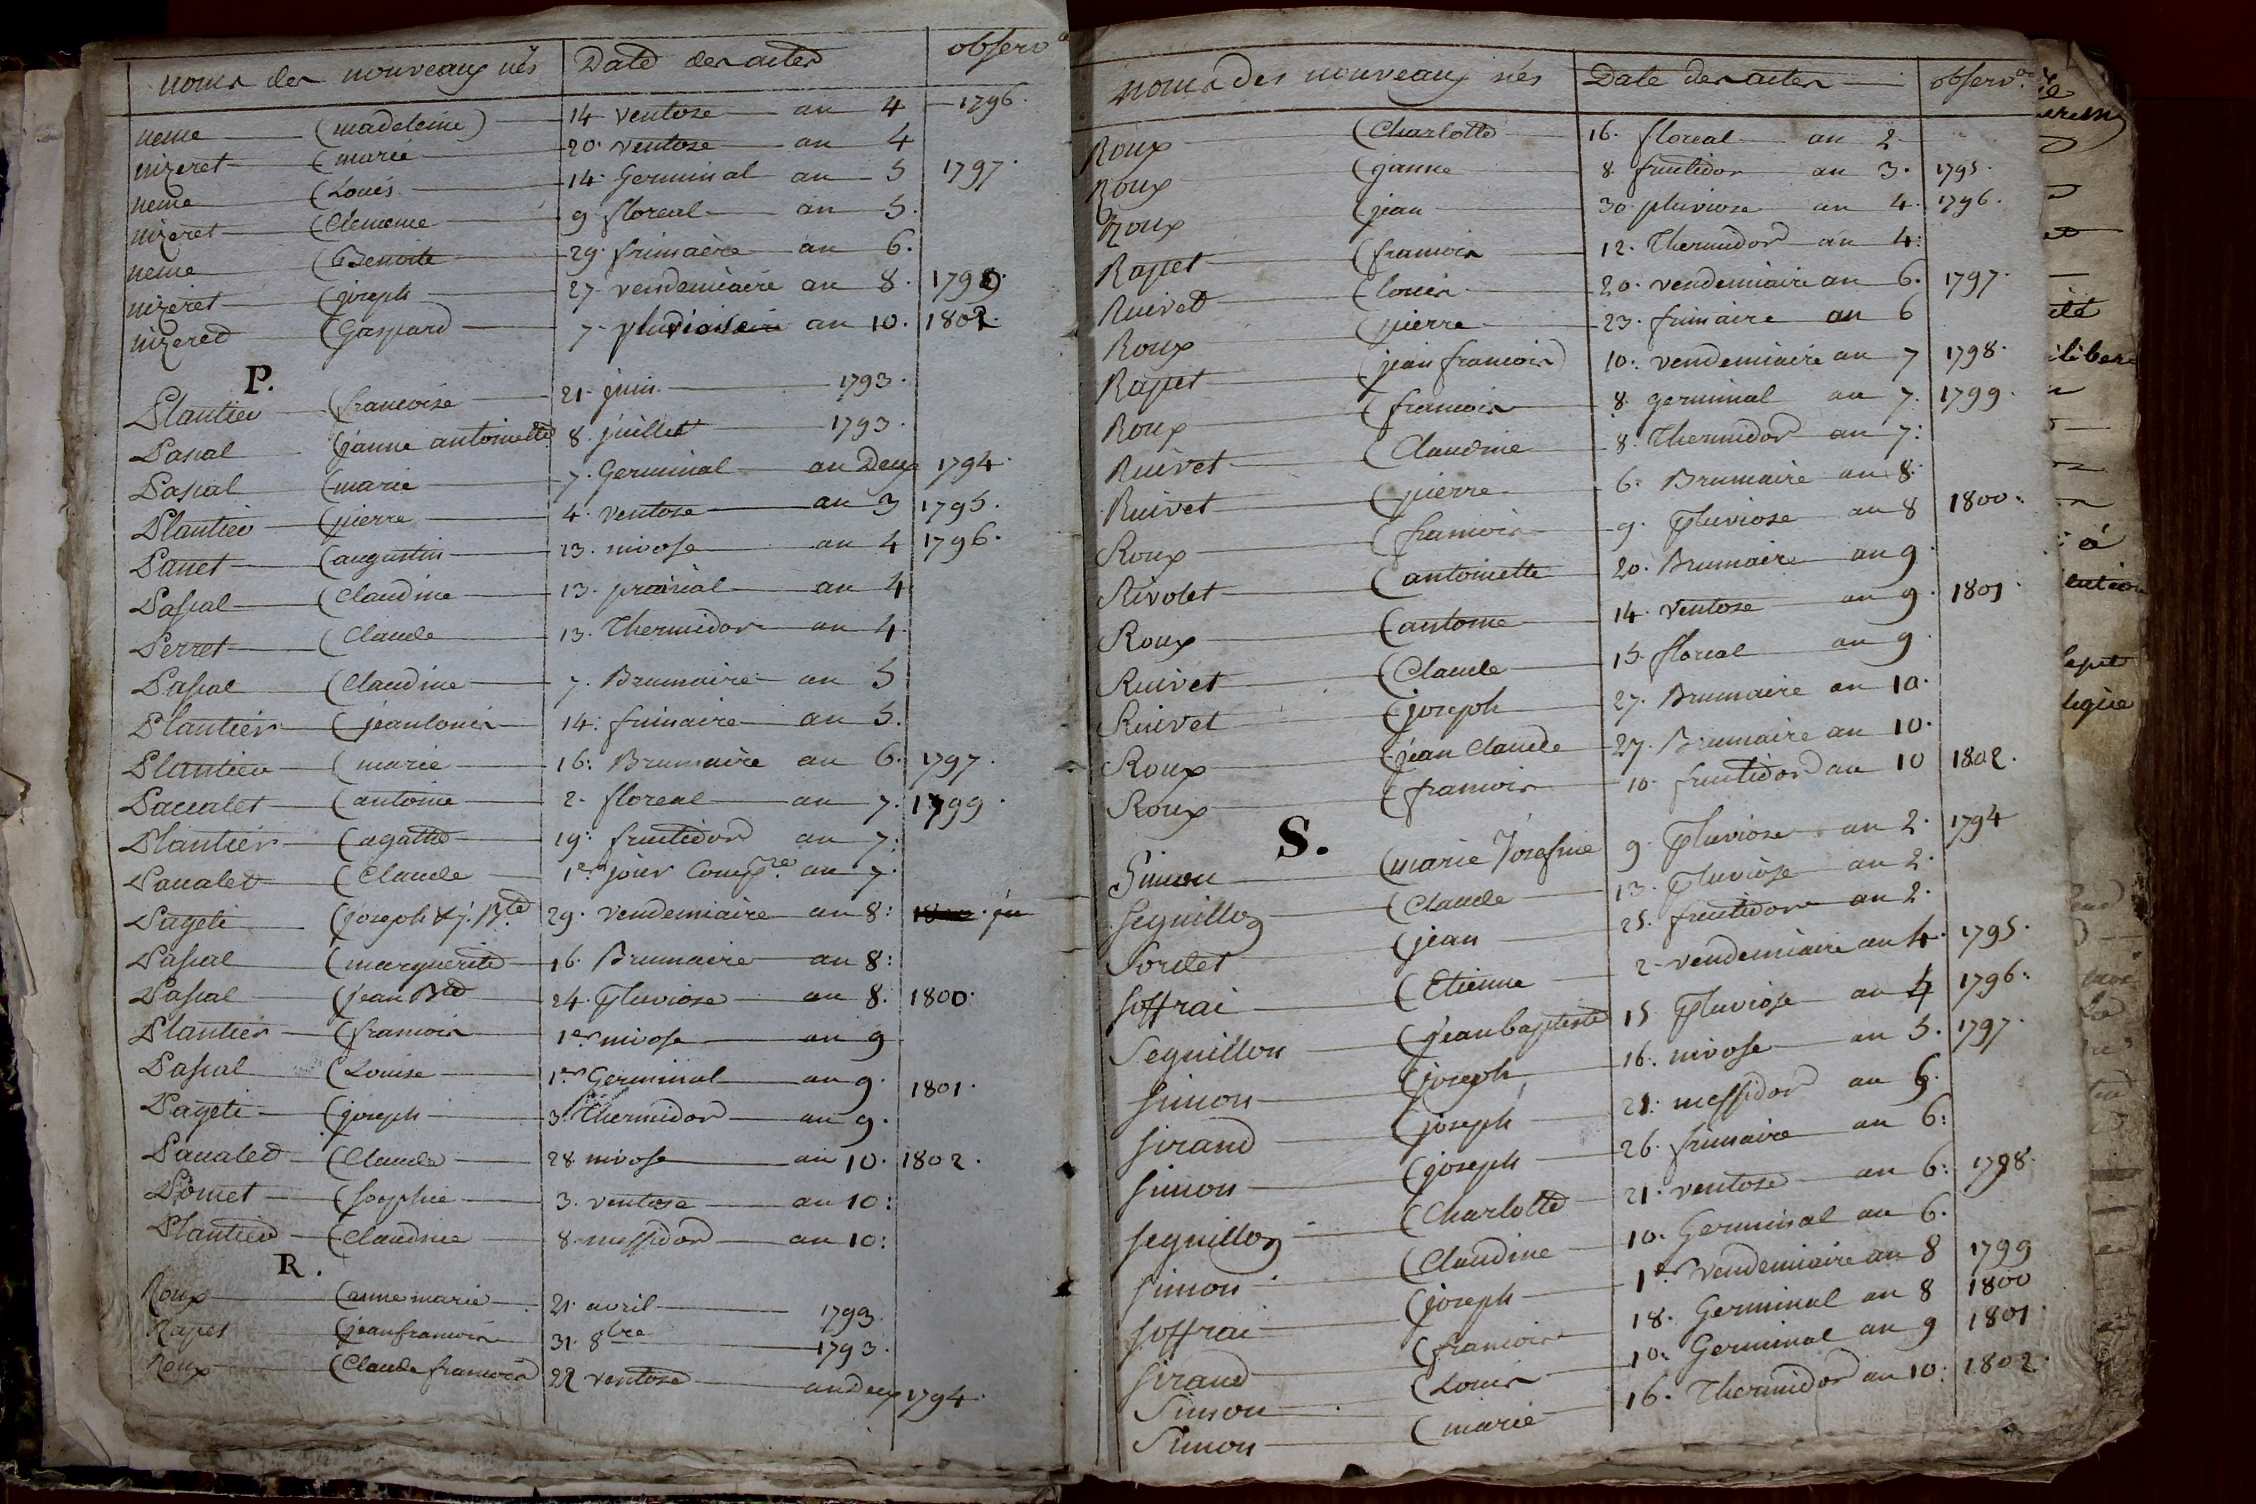 noms des nouveaux nés Date des actes observ.on
neme (madeleine) 14 ventose an 4 1796.
nizeret (marie 20. ventose an 4
neme (Louis 14. Germinal an 5 1797.
nizeret (Clemence 9 floreal an 5.
neme (Benoite 29. frimaire an 6.
nizeret (joseph 27 vendemiaire an 8. 1799.
nizeret (Gaspard 7. pluviose an 10. 1802.
P.
Plantier (francoise 21. juin 1793.
Pascal (janne antoinette 8. juillet 1793.
Pascal (marie 7. Germinal an Deux 1794.
Plantier (pierre 4. ventose an 3 1795.
Panet (augustin 13. nivose an 4 1796.
Pascal (Claudine 13. prairial an 4
Perret (Claude 13. Thermidor an 4.
Pascal (Claudine 7. Brumaire an 5
Plantier (jean louis 14. frimaire an 5.
Plantier (marie 16. Brumaire an 6. 1797.
Paccalet (antoine 2. floreal an 7. 1799.
Plantier (agathe 19. fructidor an 7.
Pacalet (Claude 1er jour Comp.re an 7.
Pageti (joseph & j. Bte 29. vendemiaire an 8:
Pascal (marguerite 16. Brumaire an 8:
Pascal (jean Bte 24. pluviose an 8. 1800.
Plantier (francois 1er nivose an 9
Pascal (Louise 1er Germinal an 9. 1801.
Pageti (joseph 3. Thermidor an 9.
Pacalet (Claude 28 nivose an 10. 1802.
Pomet (sophie 3. ventose an 10:
Plantier (Claudine 8. messidor an 10:
R.
Roux (anne marie 21. avril 1793.
Rapet (jean francois 31. 8bre 1793.
Roux (Claude francois 22 ventose an Deux 1794.
noms des nouveaux nés Date des actes observ.on
Roux (Charlotte 16. floreal an 2
Roux (janne 8 fructidor an 3. 1795.
Roux (jean 30 pluviose an 4. 1796.
Rapet (francois 12. Thermidor an 4:
Ruivet (louis 20. vendemiaire an 6. 1797.
Roux (pierre 23. frimaire an 6
Rapet (jean francois 10. vendemiaire an 7 1798.
Roux (francois 8. germinal an 7. 1799.
Ruivet (Claudine 8. Thermidor an 7:
Ruivet (pierre 6. Brumaire an 8.
Roux (francois 9. pluviose an 8 1800.
Rivolet (antoinette 20. Brumaire an 9
Roux (antoine 14. ventose an 9. 1801.
Ruivet (Claude 15. floreal an 9
Ruivet (joseph 27. Brumaire an 10.
Roux (jean Claude 27. Brumaire an 10.
Roux (francois 10. fructidor an 10 1802.
S.
Simon (marie Josefine 9. pluviose an 2. 1794
Seguillon (Claude 13. pluviose an 2.
Sordet (jean 25. fructidor an 2.
Soffrai (Etienne 2 vendemiaire an 4. 1795.
Seguillon (jean baptiste 15 pluviose an 4 1796.
Simon (joseph 16. nivose an 5. 1797.
Sirand (joseph 21. messidor an 5.
Simon (joseph 26. frimaire an 6:
Seguillon (Charlotte 21. ventose an 6: 1798.
Simon (Claudine 10. Germinal an 6.
Soffrai (joseph 1er vendemiaire an 8 1799
Sirand (francois 18. Germinal an 8 1800
Simon (Louis 10. Germinal an 9 1801.
Simon (marie 16. Thermidor an 10. 1802.